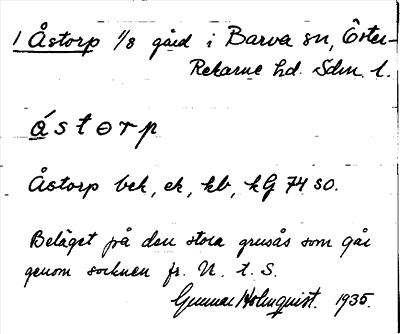 1 Åstorp 1/8 gård i Barva sn, Öster-
Rekarne hd. Sdm. l.
ástɵrp
Åstorp bek, ek, kb, kG 74 SO.
Beläget på den stora grusås som går
genom socknen fr. N. t. S.
Gunnar Holmquist. 1935.